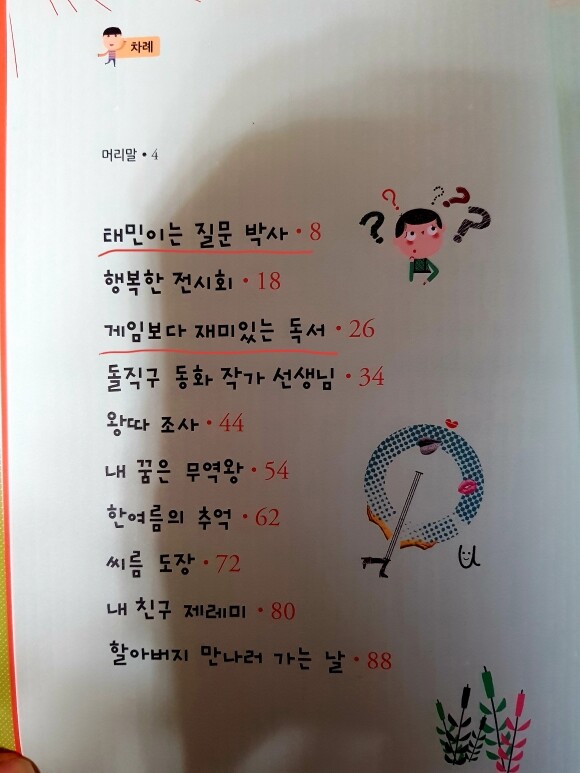 차례
머리말 • 4
태민이는 질문 박사 • 8
행복한 전시회 • 18
게임보다 재미있는 독서 • 26
돌직구 동화 작가 선생님 • 34
왕따 조사 • 44
내 꿈은 무역왕 • 54
한여름의 추억 • 62
씨름 도장 • 72
내 친구 제레미 • 80
할아버지 만나러 가는 날 • 88